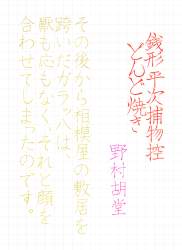 銭形平次捕物控
どんど焼き
野村胡堂
その後から相模屋の敷居を
跨いだガラッ八は、
厭も応もなく、それと顔を
合わせてしまったのです。